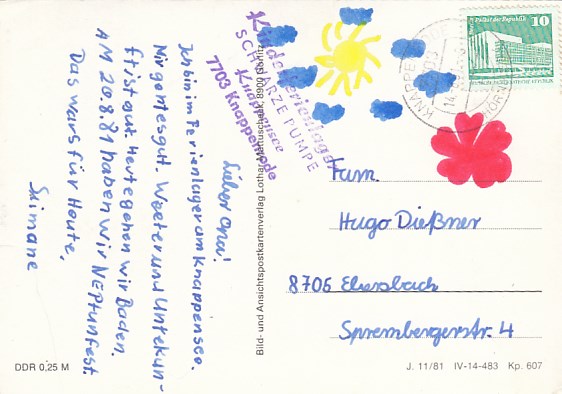 Lieber Ona!
Ich bin im Ferienlager am Knappensee.
Mir gehtes gut. Weeter und Untekun-
ft ist gut. Heute gehen wir Baden.
AM 20.8.81 haben wir NEPtunfest
Das wars für Heute.
Simane
Kinderferienlager
SCHWARZE PUMPE
Knappensee
7703 Knappenrode
Bild- und Ansichtspostkartenverlag Lothar 8900 Görlitz
Palast der Republik 10
Fam.
Hugo Dießner
8706 Ebersbach
Sprembergerstr. 4
DDR 0,25 M
J. 11/81 IV-14-483 Kp. 607